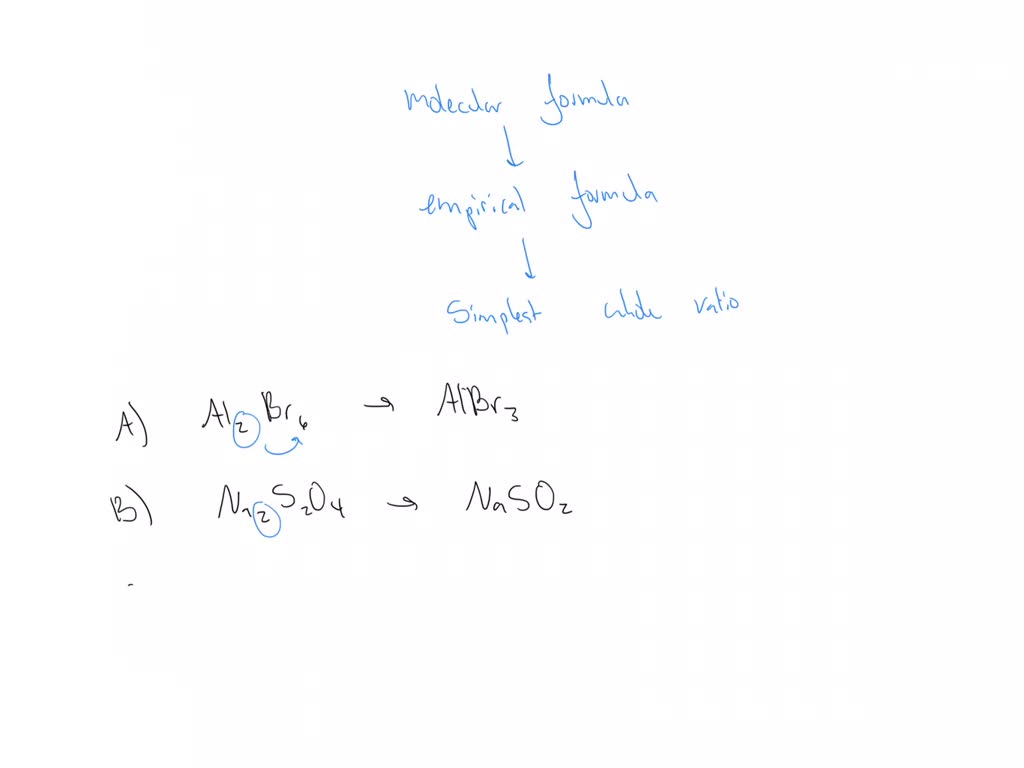 molecular formula
↓
empirical formula
↓
Simplest whole ratio
A) Al₂Br₆ → AlBr₃
B) Na₂S₂O₄ → NaSO₂